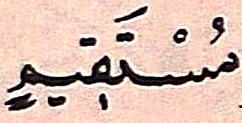 مُسْتَقِيمٍ